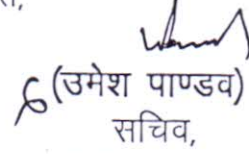 (उमेश पाण्डव)
सचिव,